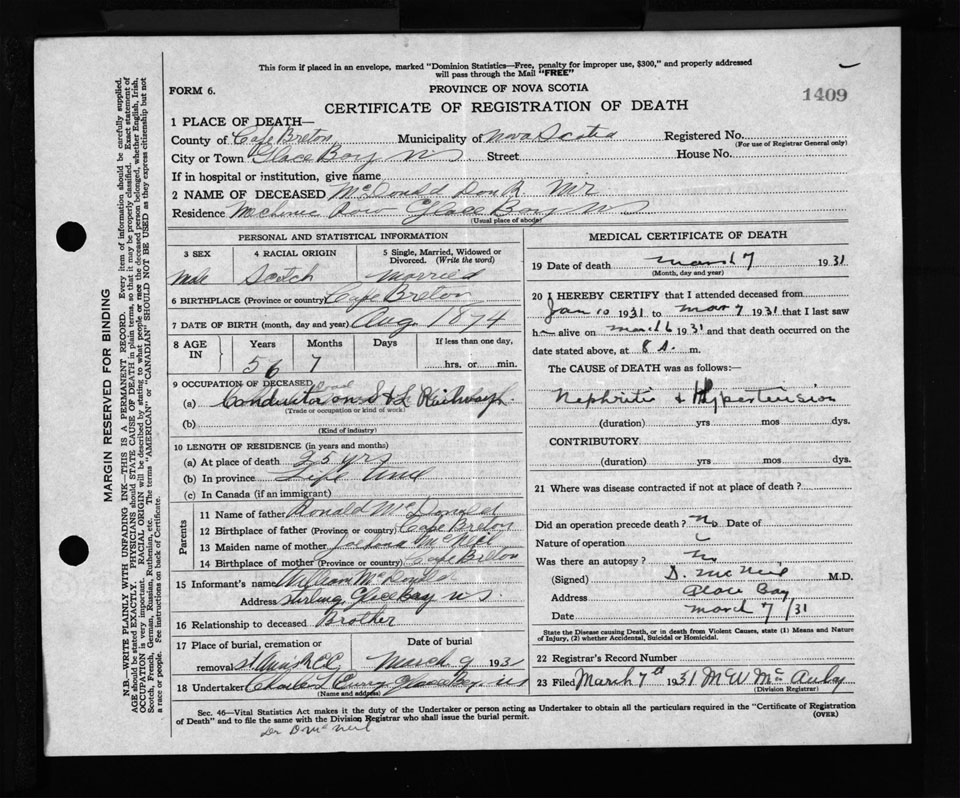 This form if placed in an envelope, marked "Dominion Statistics—Free, penalty for improper use, $300," and properly addressed
will pass through the Mail "FREE"
FORM 6.
PROVINCE OF NOVA SCOTIA
1409
CERTIFICATE OF REGISTRATION OF DEATH
1 PLACE OF DEATH—
County of Cape Breton Municipality of Nova Scotia Registered No.
(For use of Registrar General only)
City or Town Glace Bay NS Street House No.
If in hospital or institution, give name
2 NAME OF DECEASED McDonald Dan R Mr
Residence Mechanic Row Glace Bay NS
(Usual place of abode)
PERSONAL AND STATISTICAL INFORMATION
3 SEX 4 RACIAL ORIGIN 5 Single, Married, Widowed or Divorced. (Write the word)
Male Scotch Married
6 BIRTHPLACE (Province or country) Cape Breton
7 DATE OF BIRTH (month, day and year) Aug 1874
8 AGE IN Years Months Days If less than one day,
56 7 hrs. or min.
9 OCCUPATION OF DECEASED
(a) Conductor on S & L Railway.
(Trade or occupation or kind of work)
(b)
(Kind of industry)
10 LENGTH OF RESIDENCE (in years and months)
(a) At place of death 25 yrs
(b) In province Life time
(c) In Canada (if an immigrant)
Parents
11 Name of father Ronald McDonald
12 Birthplace of father (Province or country) Cape Breton
13 Maiden name of mother McNeil
14 Birthplace of mother (Province or country) Cape Breton
15 Informant's name William McDonald
Address Sterling, Glace Bay NS.
16 Relationship to deceased Brother
17 Place of burial, cremation or Date of burial
removal March 9 1931
18 Undertaker Charles Glace Bay NS
(Name and address)
MEDICAL CERTIFICATE OF DEATH
19 Date of death March 7 1931
(Month, day and year)
20 I HEREBY CERTIFY that I attended deceased from
Jan 10 1931 to Mar 7 1931 that I last saw
him alive on March 6 1931 and that death occurred on the
date stated above, at 8 A. m.
The CAUSE of DEATH was as follows:
Nephritis & Hypertension
(duration) yrs mos dys.
CONTRIBUTORY
(duration) yrs mos dys.
21 Where was disease contracted if not at place of death?
Did an operation precede death? No Date of
Nature of operation
Was there an autopsy? No
(Signed) D. McNeil M.D.
Address Glace Bay
Date March 7/31
State the Disease causing Death, or in death from Violent Causes, state (1) Means and Nature
of Injury, (2) whether Accidental, Suicidal or Homicidal.
22 Registrar's Record Number
23 Filed March 7th 1931
(Division Registrar)
Sec. 46—Vital Statistics Act makes it the duty of the Undertaker or person acting as Undertaker to obtain all the particulars required in the "Certificate of Registration
of Death" and to file the same with the Division Registrar who shall issue the burial permit. (OVER)
Dr D McNeil
MARGIN RESERVED FOR BINDING
N.B.—WRITE PLAINLY WITH UNFADING INK—THIS IS A PERMANENT RECORD. Every item of information should be carefully supplied.
AGE should be stated EXACTLY. PHYSICIANS should STATE CAUSE OF DEATH in plain terms, so that it may be properly classified. Exact statement of
OCCUPATION is very important. RACIAL ORIGIN will be described by stating to what people or race the deceased person belonged, whether English, Irish,
Scotch, French, German, Russian, Ruthenian, etc. The terms "AMERICAN" or "CANADIAN" SHOULD NOT BE USED as they express citizenship but not
a race or people. See instructions on back of Certificate.